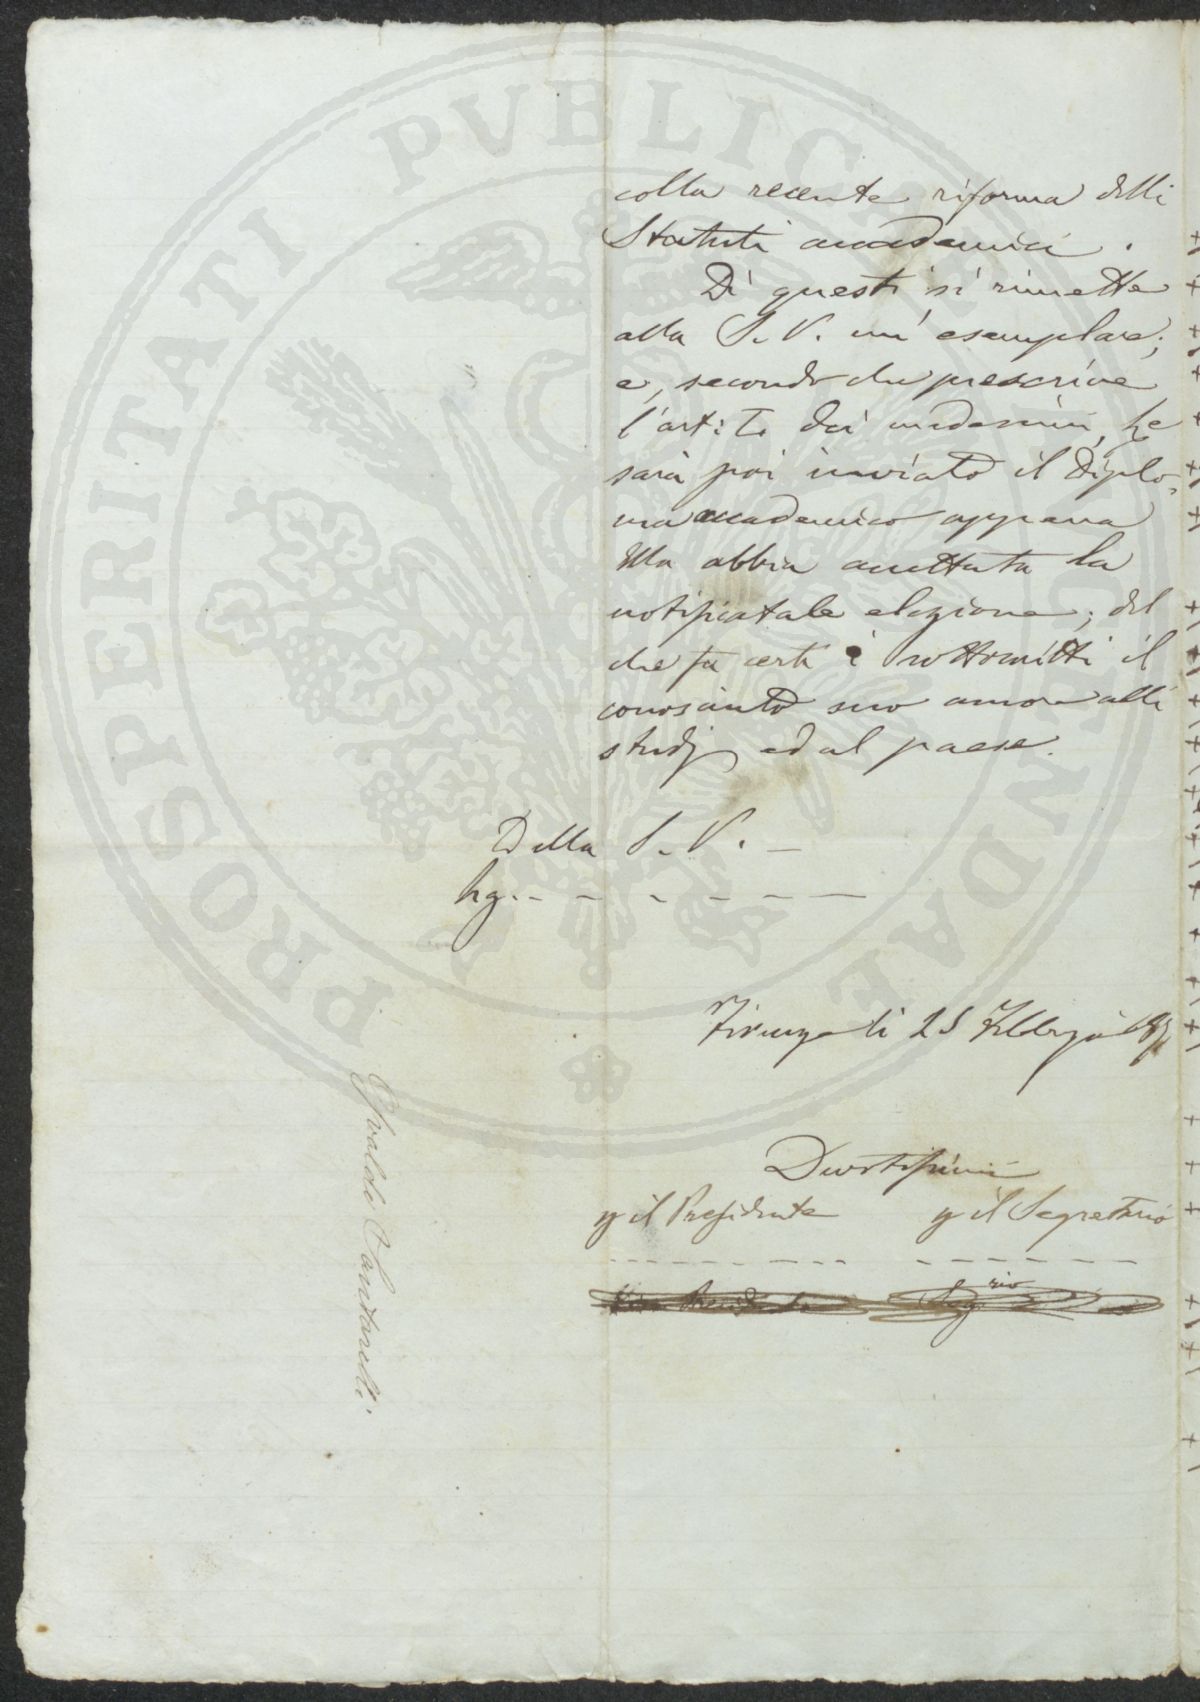 colla recente riforma delli
Statuti accademici.
Di questi si rimette
alla S. V. un esemplare;
e, secondo che prescrive
l'art: dei medesimi, Le
sarà poi inviato il Diplo-
ma accademico appena
Ella abbia accettata la
notificatale elezione; del
che fa certi i sottoscritti il
conosciuto suo amore alli
studj ed al paese.
Della S. V. _
Firenze li 25 Febbrajo
Devotissimi
p il Presidente p il Segretario
rio
Seg
Santarelli.
PROSPERITATI PUBLICAE AUGENDAE